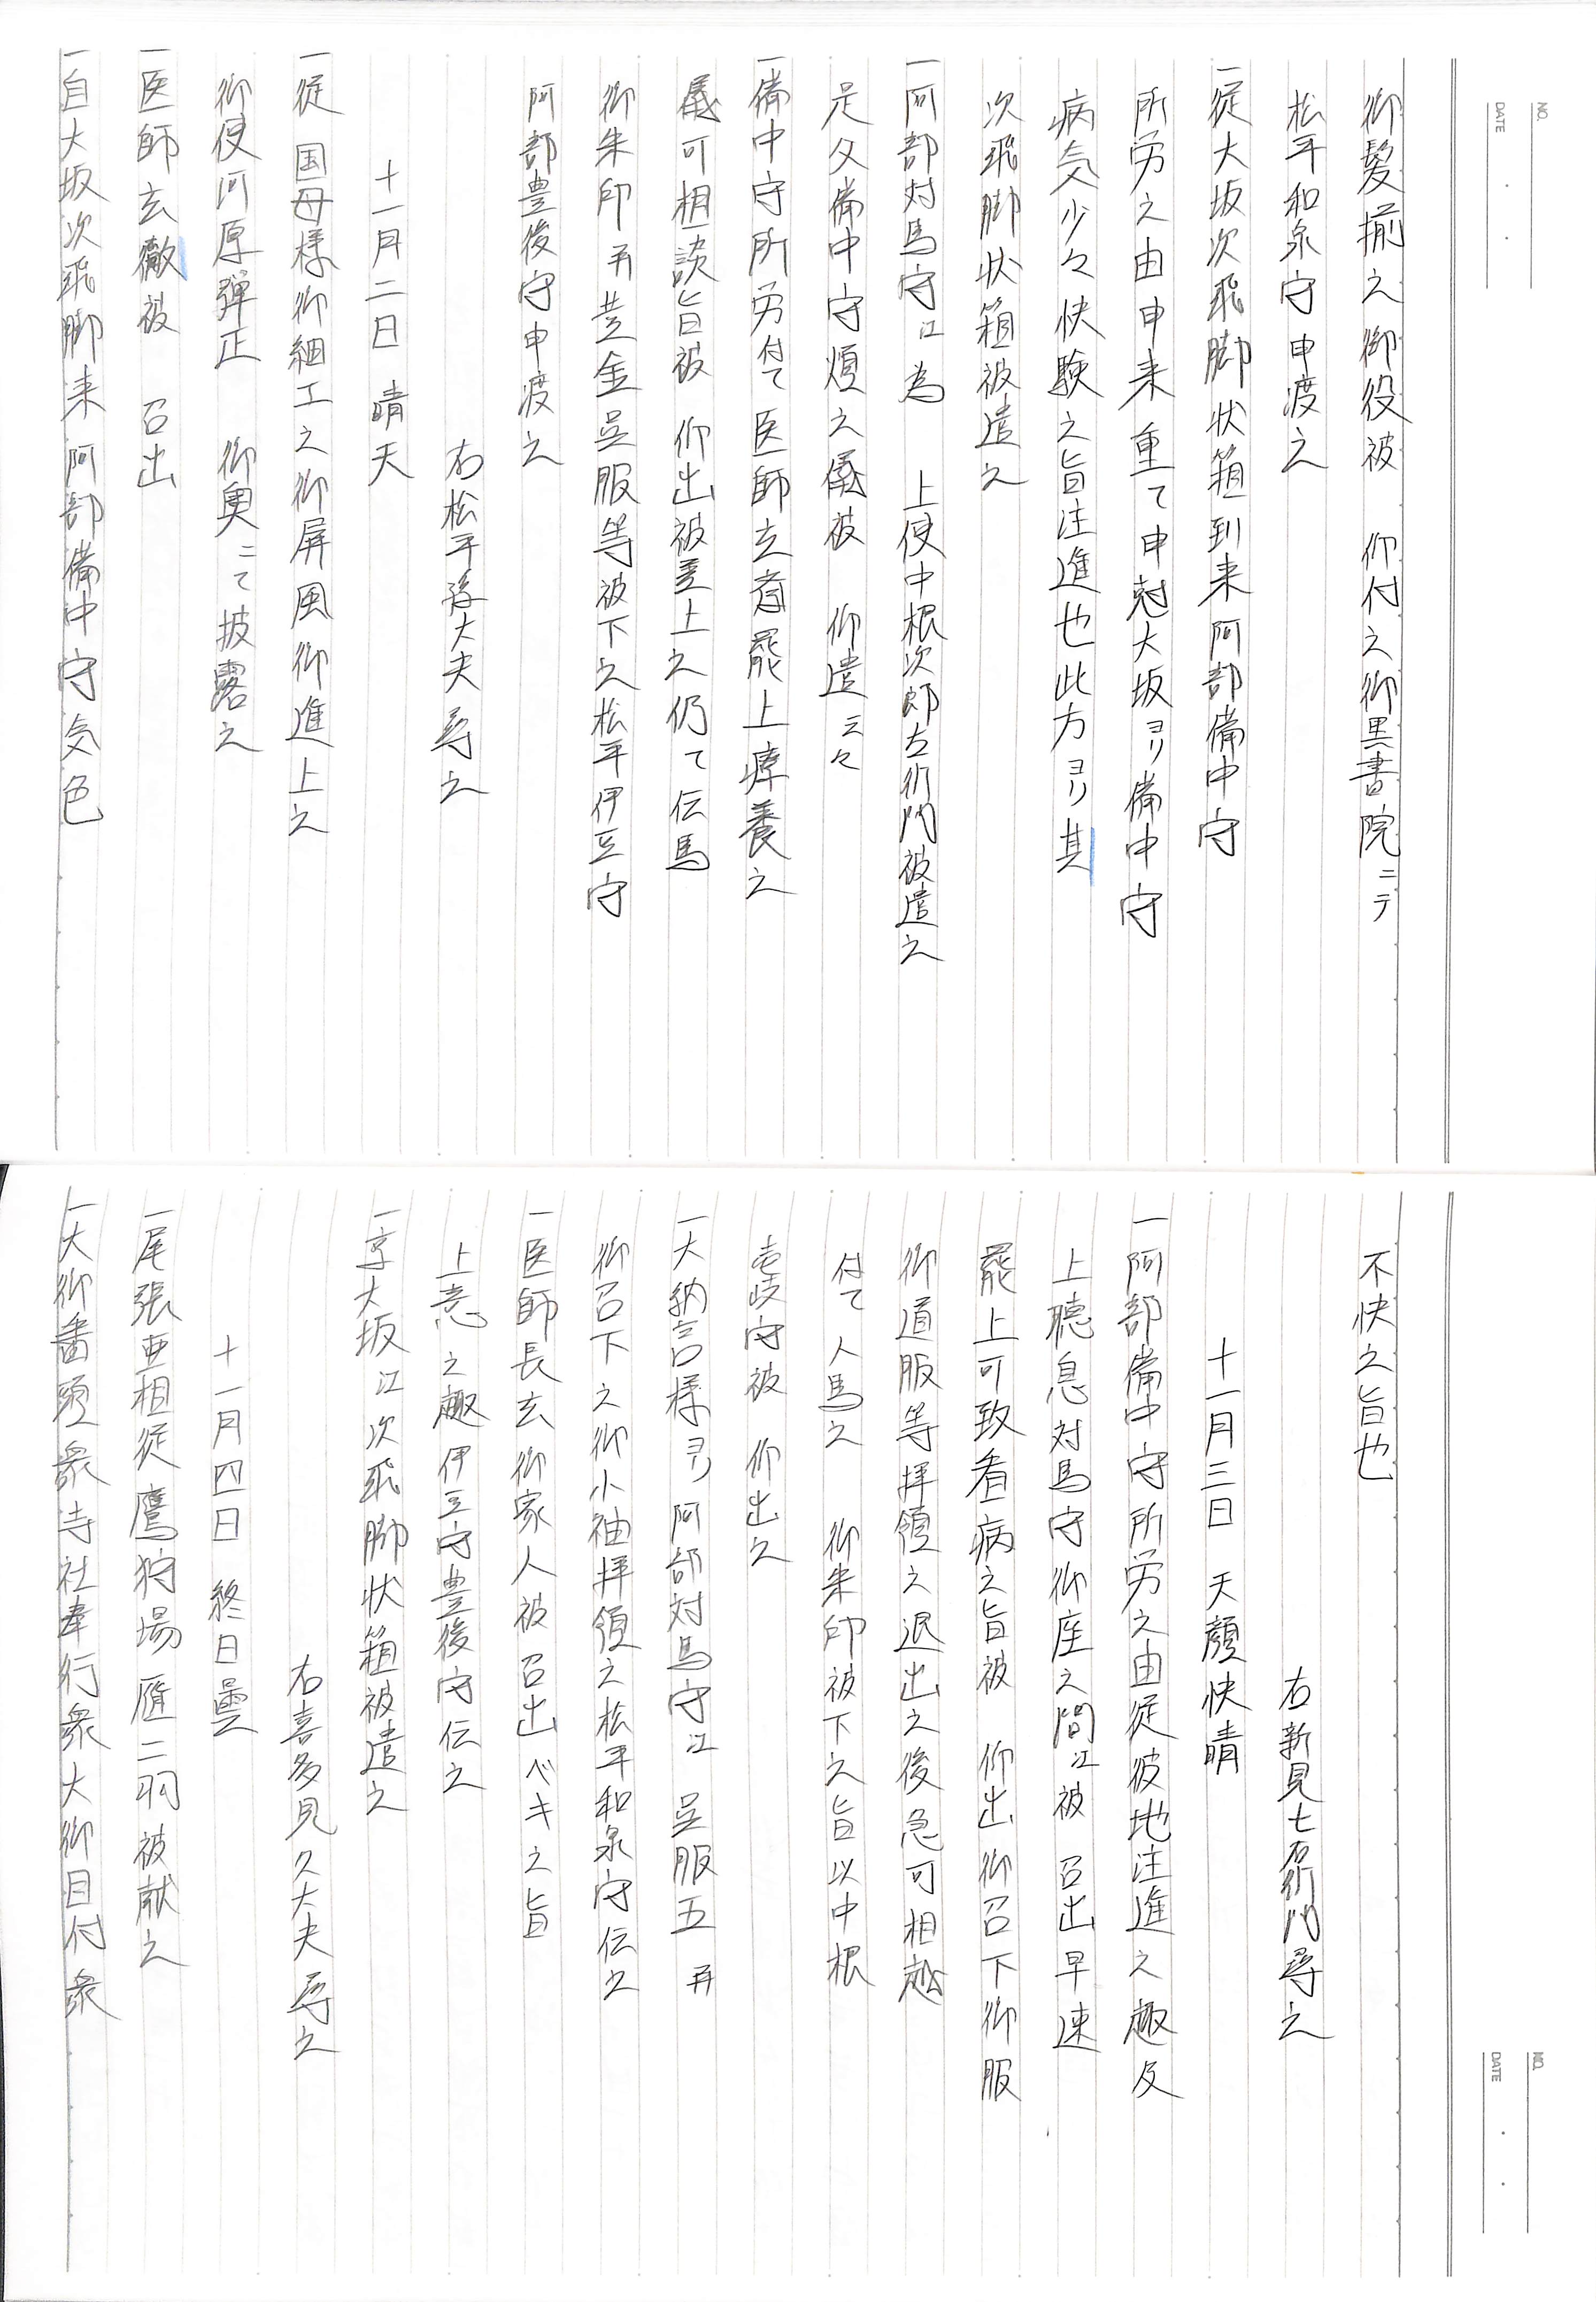 NO.
DATE
御髪揃之御役被　仰付之御黒書院ニテ
松平和泉守申渡之
一従大坂次飛脚状箱到来阿部備中守
所労之由申来重て申越大坂ヨリ備中守
病気少々快験之旨注進也此方ヨリ其
次飛脚状箱被遣之
一阿部対馬守江為　上使中根次郎左衛門被遣之
是父備中守煩之儀被　仰遣云々
一備中守所労付て医師玄斎罷上療養之
儀可相談旨被　仰出被差上之仍て伝馬
御朱印并黄金呉服等被下之松平伊豆守
阿部豊後守申渡之
右松平孫大夫尋之
十一月二日　晴天
一従　国母様御細工之御屏風御進上之
御使河原弾正　御奥ニて披露之
一医師玄徹被　召出
一自大坂次飛脚来阿部備中守気色
NO.
DATE
不快之旨也
右新見七右衛門尋之
十一月三日　天顔快晴
一阿部備中守所労之由従彼地注進之趣及
上聴息対馬守御座之間江被　召出早速
罷上可致看病之旨被　仰出御召下御服
御道服等拝領之退出之後急可相越
付て人馬之　御朱印被下之旨以中根
壱岐守被　仰出之
一大納言様ヨリ阿部対馬守江　呉服五并
御召下之御小袖拝領之松平和泉守伝之
一医師長玄御家人被召出ベキ之旨
上意之趣伊豆守豊後守伝之
一京大坂江次飛脚状箱被遣之
右喜多見久大夫尋之
十一月四日　終日曇
一尾張亜相従鷹狩場雁二羽被献之
一大御番頭衆寺社奉行衆大御目付衆